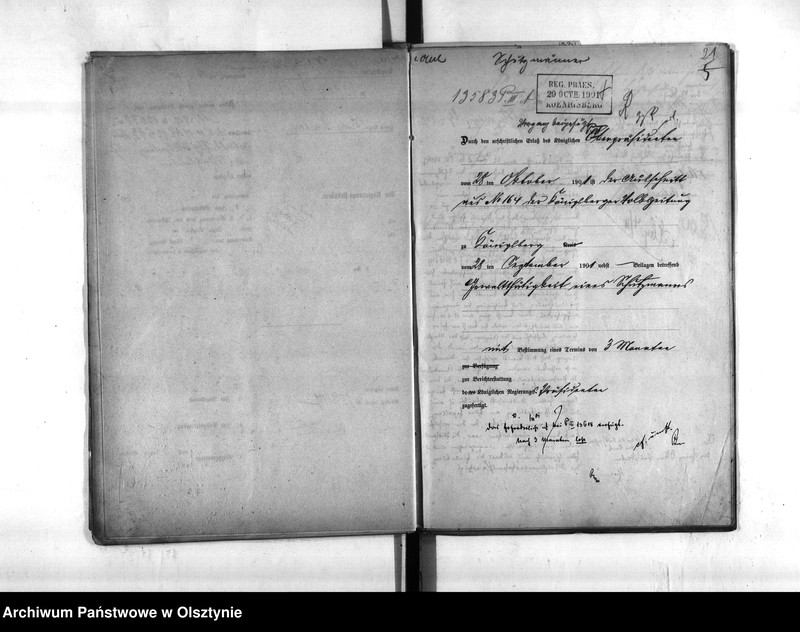 Schutzmänner
21
5
13583 P. III. 1
REG. PRAES.
29 OCTB. 1901
KOENIGSBERG
Vorgang beigefügt
Durch den urschriftlichen Erlaß des Königlichen Oberpräsidenten
vom 28 ten Oktober 1901 ist der Ausschnitt
aus No 164 der Königsberger Volkszeitung
zu Königsberg
vom 28 ten September 1901 nebst — Beilagen betreffend
Gewaltthätigkeit eines Schutzmanns
mit Bestimmung eines Termins von 3 Monaten
zur Verfügung
zur Berichterstattung
dem Königlichen Regierungs-Präsidenten
zugefertigt.
Das Erforderliche ist bei verfügt.
Nach 3 Monaten
Archiwum Państwowe w Olsztynie